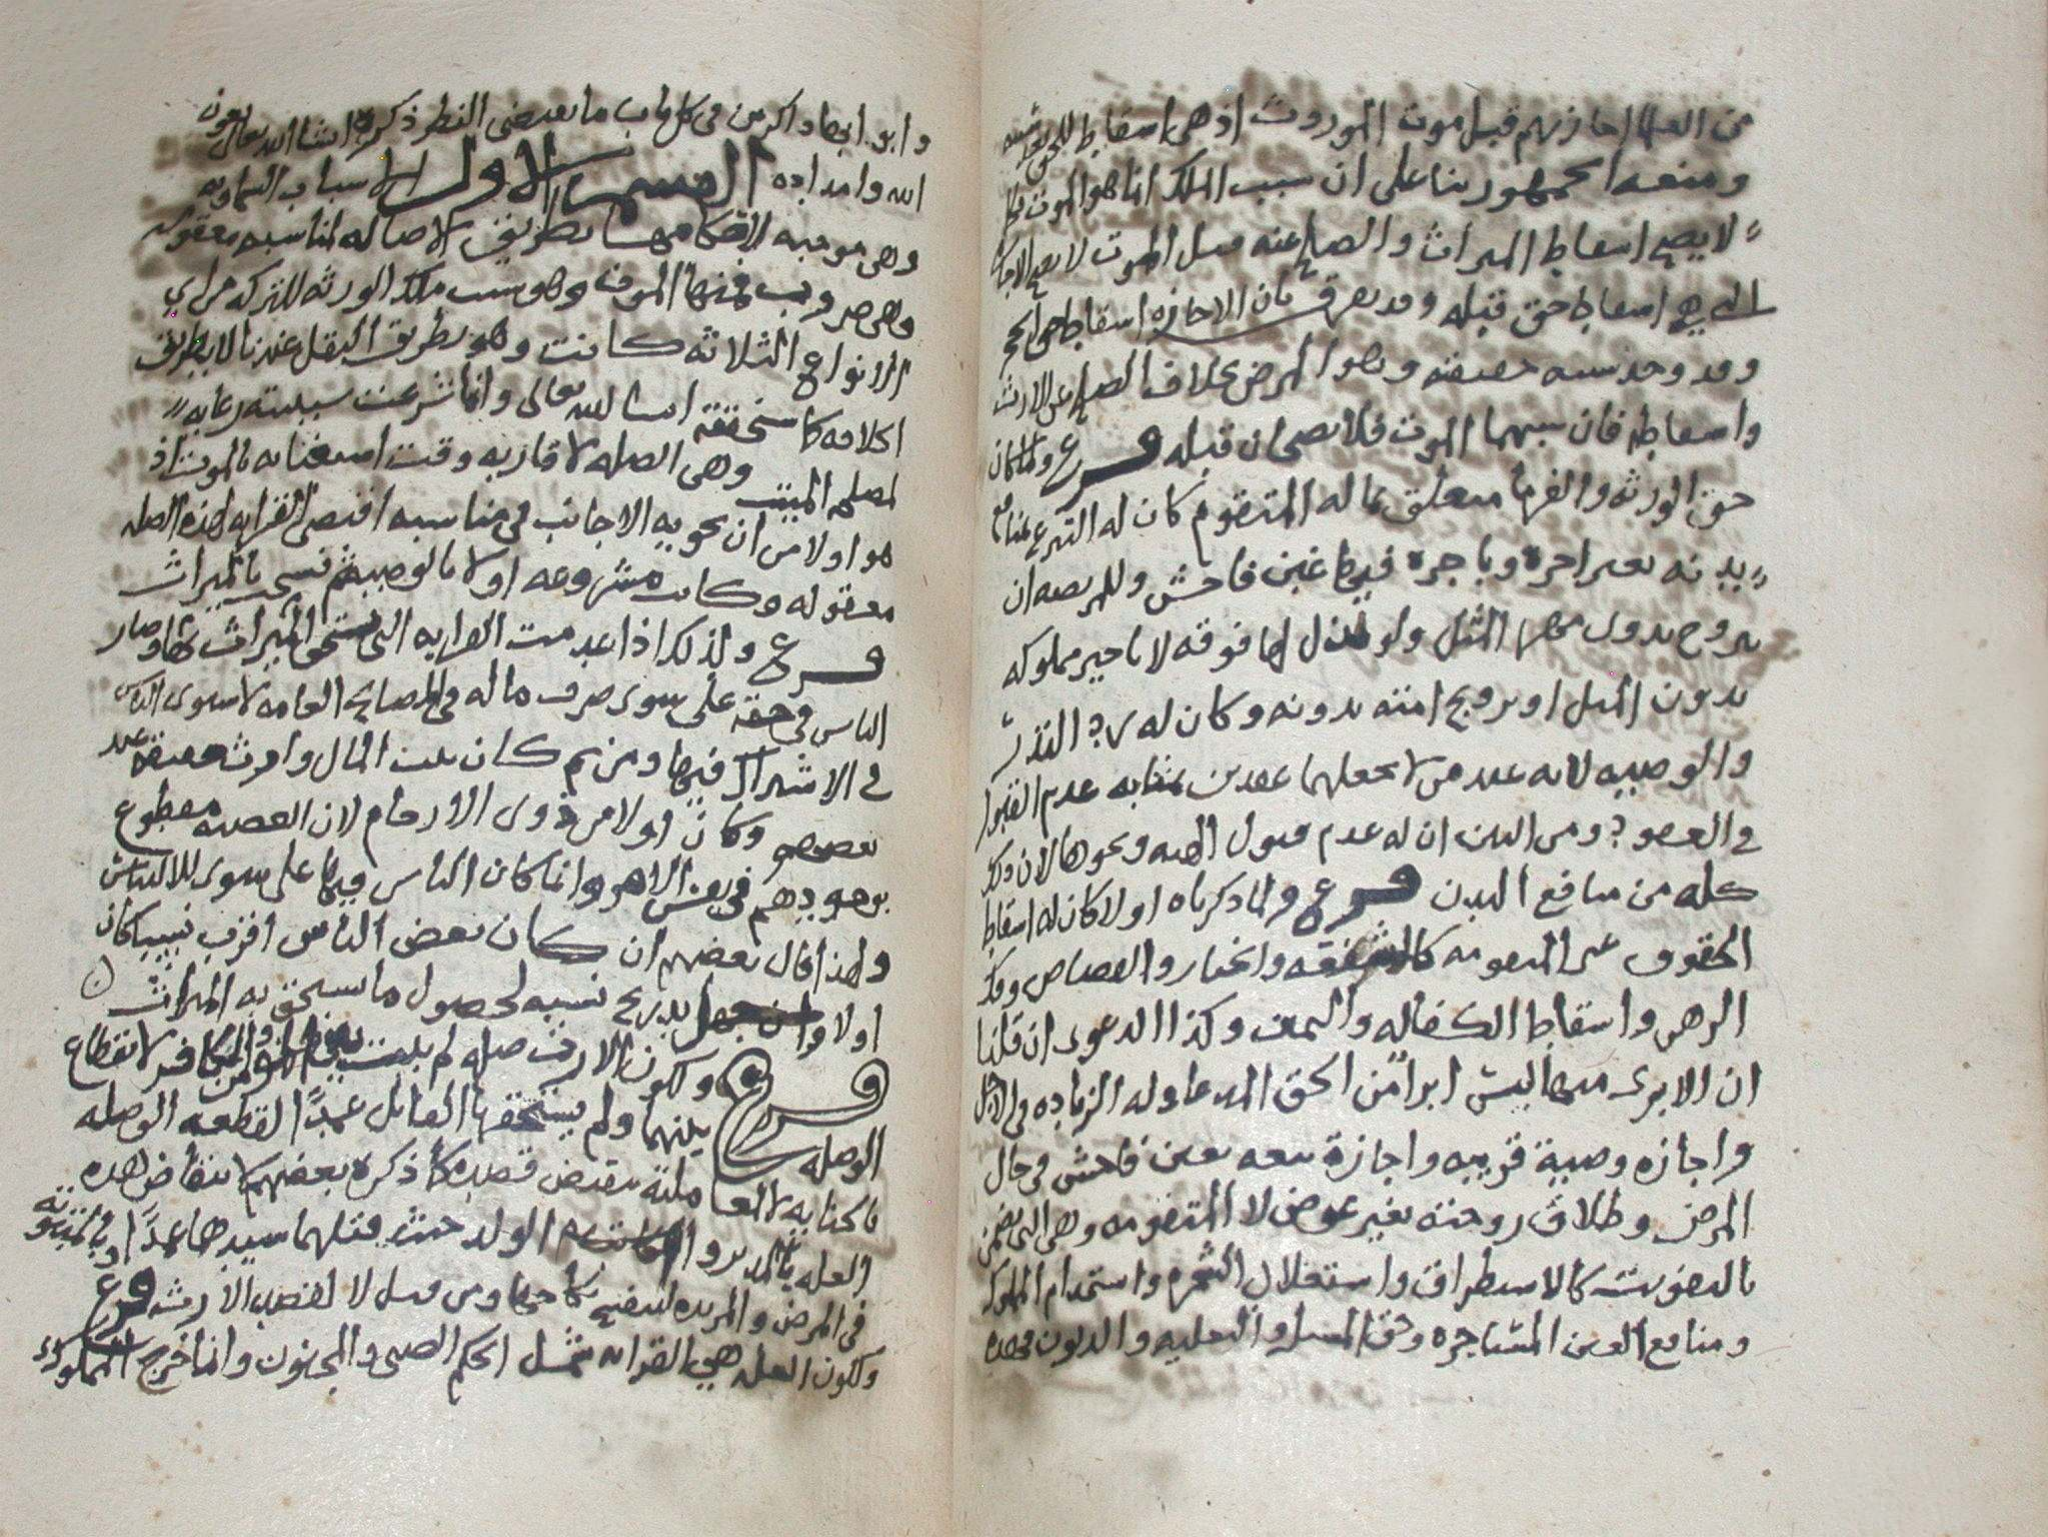 من العلما اجازتهم قبل موت الموروث اذ هي اسقاط للحق بعد سببه
ومنعه الجمهور بنا على ان سبب الملك انما هو الموت فكما
لا يصح اسقاط الميراث والصلح عنه قبل الموت لا يصح الاجازة
التي هي اسقاط حق قبله وقد يفرق بان الاجازه اسقاط حق الحجر
وقد وجد سببه حقيقة وهو المرض بخلاف الصلح عن الارث
واسقاطه فان سببهما الموت فلا يصحان قبله فرع ولما كان
حق الورثه والغرما متعلق بماله المتقوم كان له التبرع بمنافع
بدنه بغير اجرة وباجرة فيها غبن فاحش وللمريضه ان
تزوج بدون مهر المثل ولو بذل لها فوقه لا تاجير مملوكه
بدون المثل او تزويج امته بدونه وكان له رد النذر
والوصيه لانه عند من لا يجعلهما عقدين بمثابه عدم القبول
في العقود ومن البين ان له عدم قبول الهبه ونحوها لان ذلك
كله من منافع البدن فرع ولما ذكرناه اولا كان له اسقاط
الحقوق غير المتقومه كالشفعه والخيار والقصاص وفك
الرهن واسقاط الكفاله واليمين وكذا الدعوى ان قلنا
ان الابرى منها ليس ابراً من الحق المدعا وله الزياده في الاجل
واجازه وصية قريبه واجازة بيعه بغبن فاحش في حال
المرض وطلاق زوجته بغير عوض لا المتقومه وهي التي تضمن
بالتفويت كالاستطراق واستغلال الشجره واستخدام المملوك
ومنافع العين المستاجره وحق المسيل والتعليه والديون
وابو ابها داكرين في كل باب ما يقتضي النظر ذكره انشا الله تعالى بعون
الله وامداده القسم الاول الاسباب السماويه
وهي موجبه لاحكامها بطريق الاصاله لمناسبه معقوله
وهي ضروب فمنها الموت وهو سبب ملك الورثه للتركه من اي
الانواع الثلاثه كانت وهو بطريق النقل عندنا لا بطريق
الخلافه كما سنحققه انشا الله تعالى وانما شرعت سببيته رعايه
لمصلحه الميت وهي الصله لاقاربه وقت استغنايه بالموت اذ
هو اولا من ان يحويه الاجانب في مناسبه اقتضى القرابه لهذه الصله
معقوله وكانت مشروعه اولا بالوصيه ثم نسخ بالميراث
فرع ولذلك اذا عدمت القرابه التي تستحق الميراث بها وصار
الناس في حقه على سوى صرف ماله في المصالح العامه لاستوى الناس
في الاشتراك فيها ومن ثم كان بيت المال وارث حقيقة عند
بعضهم وكان اولا من ذوى الارحام لان العصبه مقطوع
بوجودهم في نفس الامر وانما كان الناس فيها على سوى للالتباس
ولهذا قال بعضهم ان كان بعض الناس اقرب نسبا كان
اولا وان جهل تدريج نسبه لحصول ما يستحق به الميراث
فرع ولكون الارث صله لم يثبت بين المؤمن والكافر لانقطاع
الوصله بينهما ولم يستحقها القاتل عمداً لقطعه الوصله
بالجنايه لا لمعاملته بنقيض قصده كما ذكره بعضهم لانتقاض هذه
العله بالمدبر وام الولد حيث قتلهما سيدهما عمداً او بالمبتوته
في المرض والمرتده لينفسخ نكاحها ومن قتل لا لقصد الارث فرع
ولكون العله هي القرابه شمل الحكم الصبي والمجنون وانما خرج المملوك